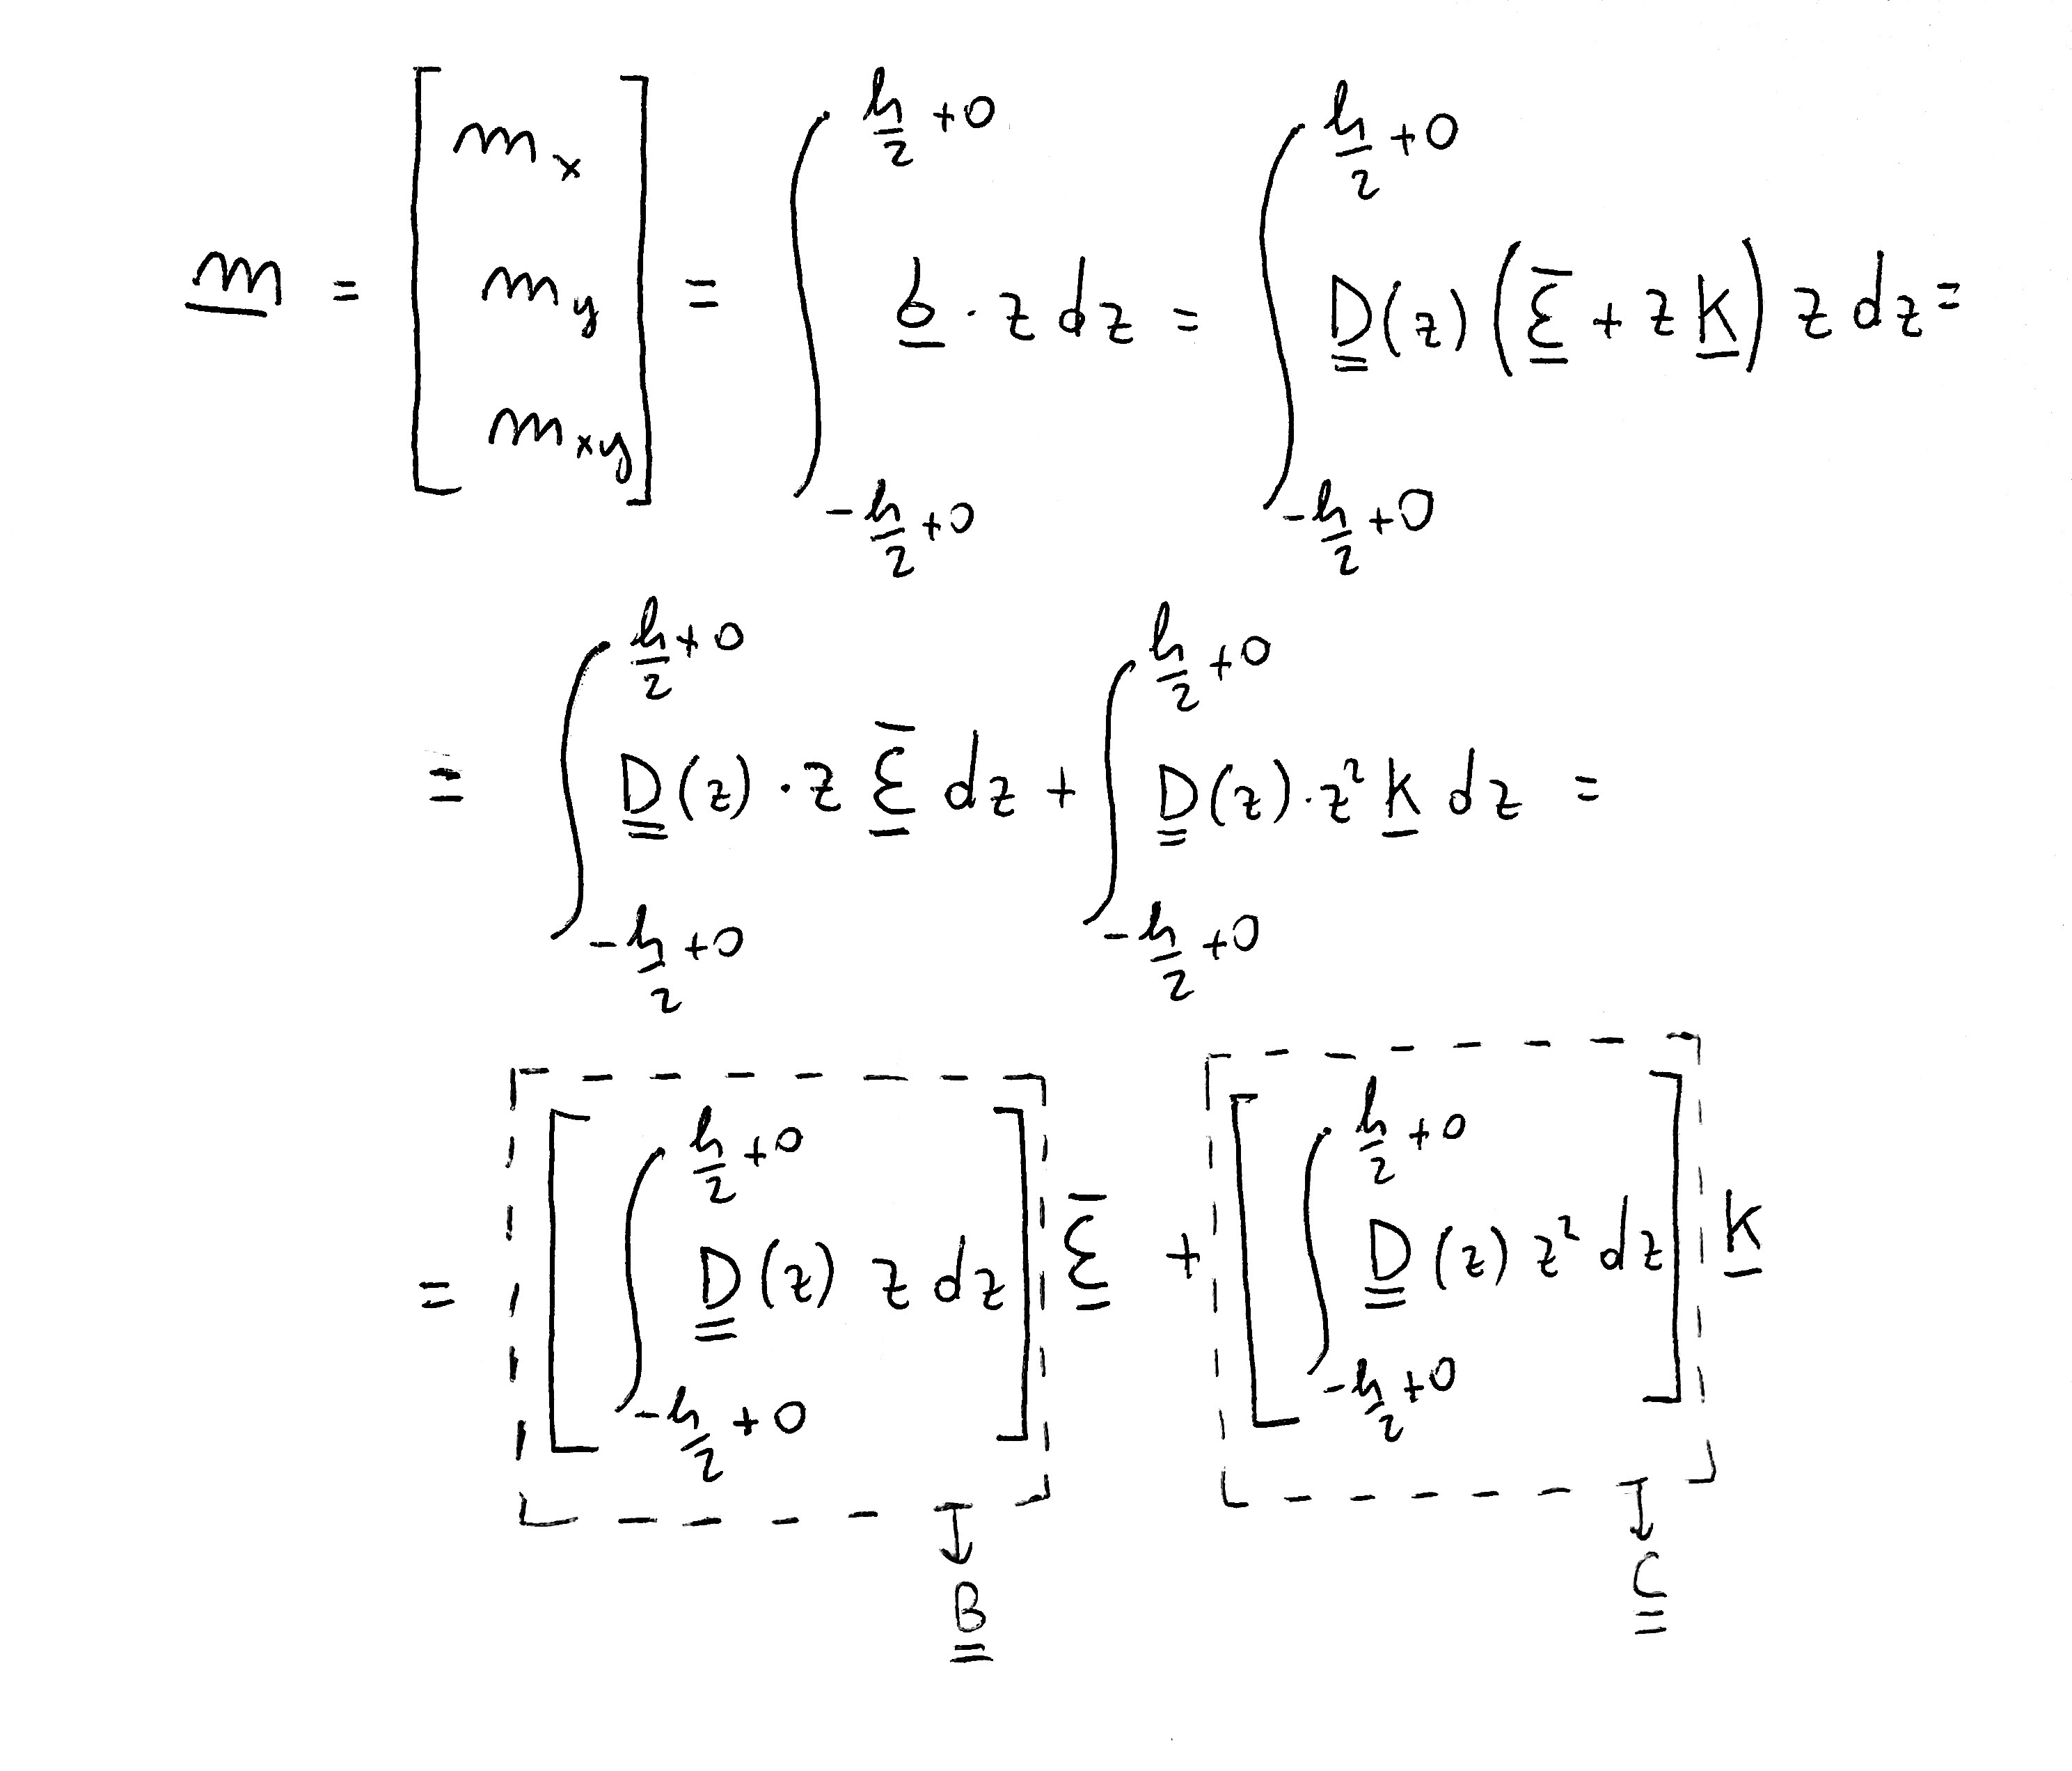 $\underline{m} = \begin{bmatrix} m_x \\ m_y \\ m_{xy} \end{bmatrix} = \int_{-\frac{h}{2}+0}^{\frac{h}{2}+0} \underline{\sigma} \cdot z \, dz = \int_{-\frac{h}{2}+0}^{\frac{h}{2}+0} \underline{\underline{D}}(z) \left( \underline{\bar{\varepsilon}} + z \underline{k} \right) z \, dz =$
$= \int_{-\frac{h}{2}+0}^{\frac{h}{2}+0} \underline{\underline{D}}(z) \cdot z \, \underline{\bar{\varepsilon}} \, dz + \int_{-\frac{h}{2}+0}^{\frac{h}{2}+0} \underline{\underline{D}}(z) \cdot z^2 \underline{k} \, dz =$
$= \left[ \int_{-\frac{h}{2}+0}^{\frac{h}{2}+0} \underline{\underline{D}}(z) \, z \, dz \right] \underline{\bar{\varepsilon}} + \left[ \int_{-\frac{h}{2}+0}^{\frac{h}{2}+0} \underline{\underline{D}}(z) \, z^2 \, dz \right] \underline{k}$
$\downarrow \quad \downarrow$
$\underline{\underline{B}} \quad \underline{\underline{C}}$